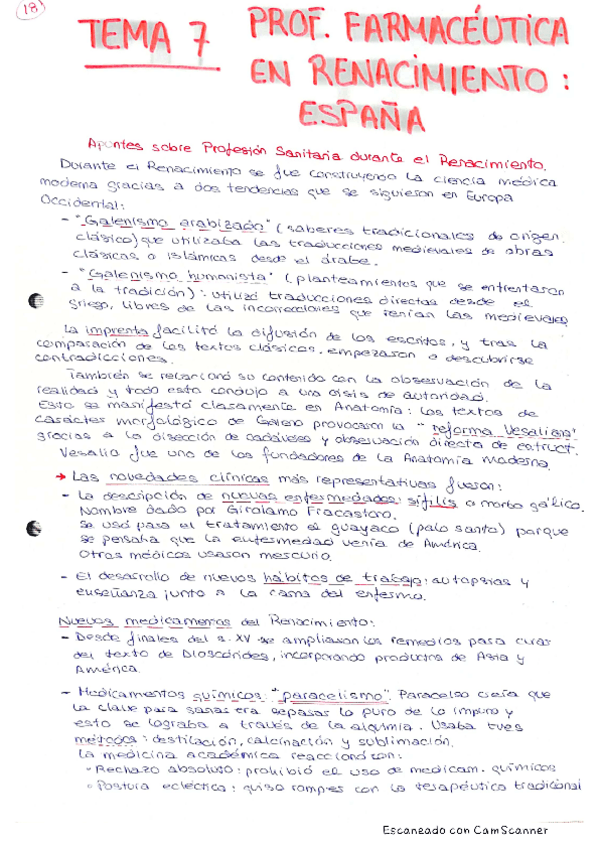 18
TEMA 7 PROF. FARMACÉUTICA
EN RENACIMIENTO:
ESPAÑA
Apuntes sobre Profesión Sanitaria durante el Renacimiento.
Durante el Renacimiento se fue construyendo la ciencia médica
moderna gracias a dos tendencias que se siguieron en Europa
Occidental:
- "Galenismo arabizado" (saberes tradicionales de origen
clásico) que utilizaba las traducciones medievales de obras
clásicas o islámicas desde el árabe.
- "Galenismo humanista" (planteamientos que se enfrentaron
a la tradición): utilizó traducciones directas desde el
griego, libres de las incorrecciones que tenían las medievales
La imprenta facilitó la difusión de los escritos, y tras la
comparación de los textos clásicos, empezaron a descubrirse
contradicciones.
También se relacionó su contenido con la observación de la
realidad y todo esto condujo a una crisis de autoridad.
Esto se manifestó claramente en Anatomía: los textos de
carácter morfológico de Galeno provocaron la "reforma Vesaliana"
gracias a la disección de cadáveres y observación directa de estruct.
Vesalio fue uno de los fundadores de la Anatomía moderna.
→ Las novedades clínicas más representativas fueron:
- La descripción de nuevas enfermedades: sífilis o morbo gálico.
Nombre dado por Girolamo Fracastoro.
Se usó para el tratamiento el guayaco (palo santo) porque
se pensaba que la enfermedad venía de América.
Otros médicos usaron mercurio.
- El desarrollo de nuevos hábitos de trabajo: autopsias y
enseñanza junto a la cama del enfermo.
Nuevos medicamentos del Renacimiento:
- Desde finales del s. XV se ampliaron los remedios para curar
del texto de Dioscórides, incorporando productos de Asia y
América.
- Medicamentos químicos: "paracelismo". Paracelso creía que
la clave para sanar era separar lo puro de lo impuro y
esto se lograba a través de la alquimia. Usaba tres
métodos: destilación, calcinación y sublimación.
La medicina académica reaccionó con:
◦ Rechazo absoluto: prohibió el uso de medicam. químicos
◦ Postura ecléctica: quiso romper con la terapéutica tradicional
Escaneado con CamScanner